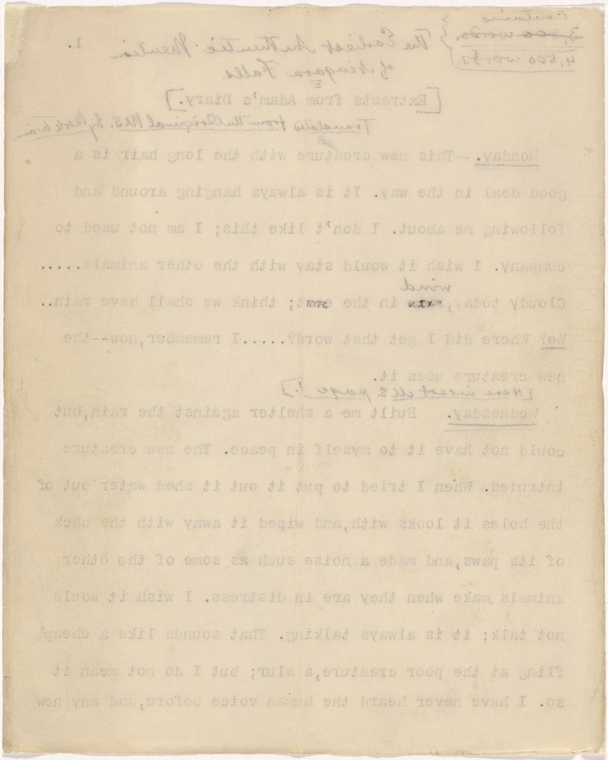 Contains
3,800 words.
4,500 words
1.
The Earliest Authentic Mention
of Niagara Falls.
[Extracts from Adam's Diary.]
Translated from the Original MS. by Mark Twain
Monday.--This new creature with the long hair is a
good deal in the way. It is always hanging around and
following me about. I don't like this; I am not used to
company. I wish it would stay with the other animals.....
wind
Cloudy today, in the east; think we shall have rain..
We? Where did I get that word?.....I remember,now--the
new creature uses it.
[Here insert MS. page
Wednesday. Built me a shelter against the rain,but
could not have it to myself in peace. The new creature
intruded. When I tried to put it out it shed water out of
the holes it looks with,and wiped it away with the back
of its paws,and made a noise such as some of the other
animals make when they are in distress. I wish it would
not talk; it is always talking. That sounds like a cheap
fling at the poor creature,a slur; but I do not mean it
so. I have never heard the human voice before,and any new